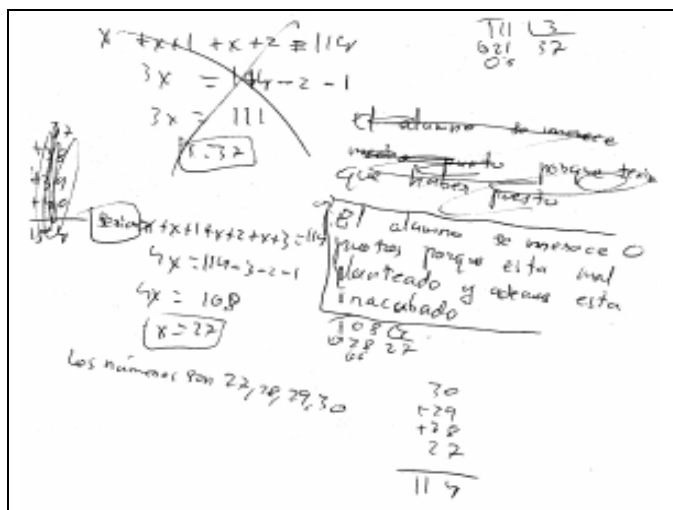 x + x+1 + x+2 = 114
3x = 114-2-1
3x = 111
x=37
111 L3
021 37
0
El alumno se merece
porque tenia
que haber puesto
37
+38
+39
seria x+x+1+x+2+x+3=114
4x=114-3-2-1
4x = 108
x=27
Los números son 27,28,29,30
El alumno se merece 0
puntos porque esta mal
planteado y ademas esta
inacabado
108
028 27
30
+29
+28
27
114